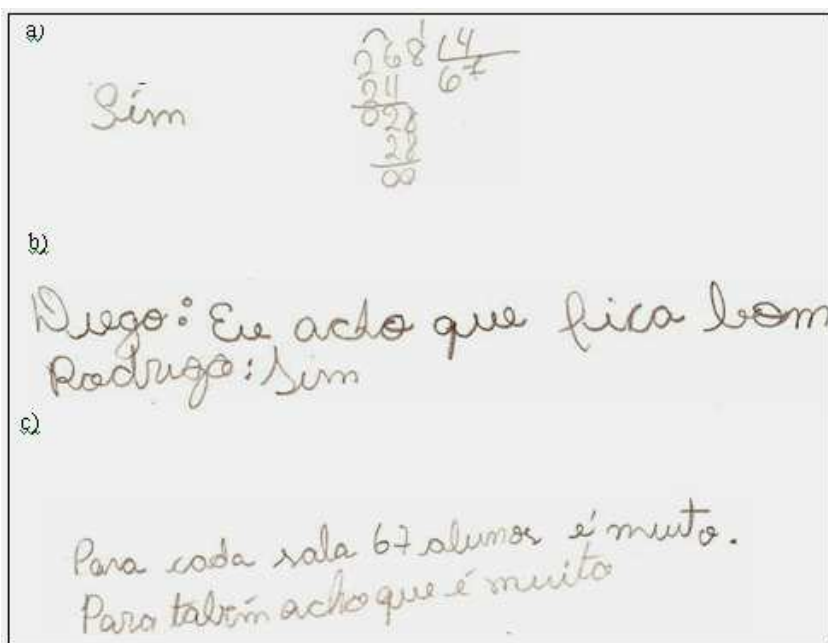 a)
Sim
268 | 4
24 67
028
28
00
b)
Diego: Eu acho que fica bom
Rodrigo: Sim
c)
Para cada sala 67 alunos é muito.
Para acho que é muito